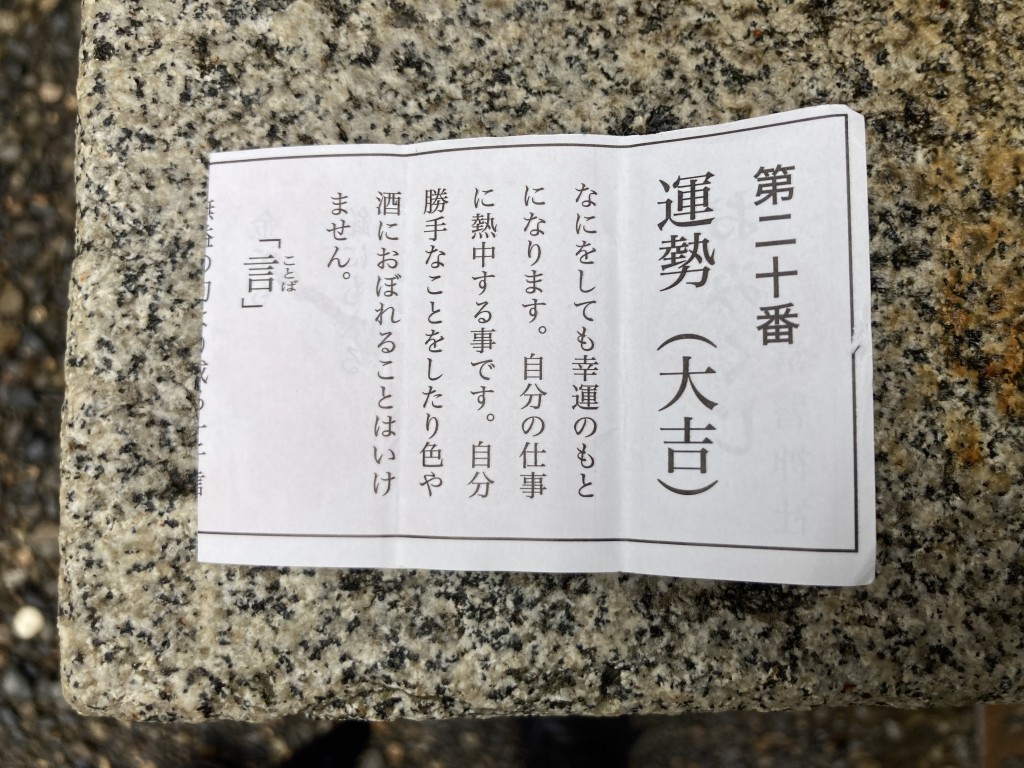 第二十番
運勢（大吉）
なにをしても幸運のもと
になります。自分の仕事
に熱中する事です。自分
勝手なことをしたり色や
酒におぼれることはいけ
ません。
「言」
ことば